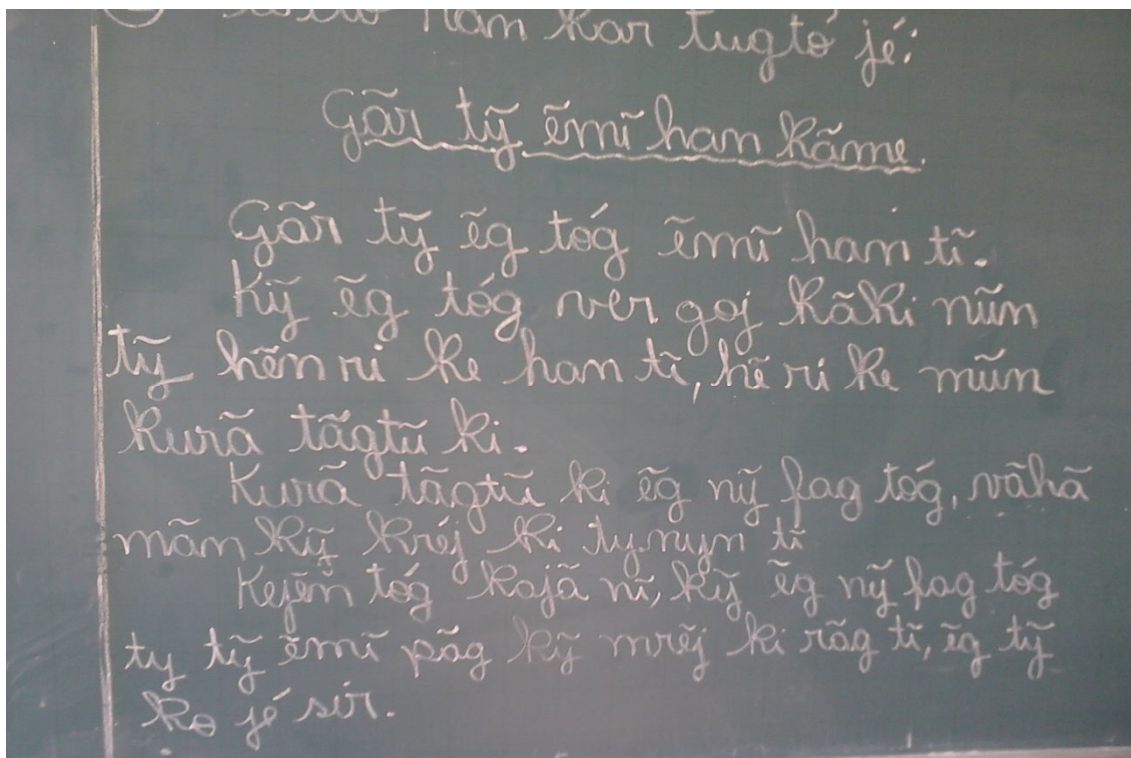 hãm kar tugtó jé:
Gãr tỹ ẽmĩ han kãme.
Gãr tỹ ẽg tóg ẽmĩ han tĩ.
Kỹ ẽg tóg ver goj kãki nũn
tỹ hẽn ri ke han tĩ, hẽ ri ke mũn
kurã tãgtũ ki.
Kurã tãgtũ ki ẽg nỹ fag tóg, vãhã
mãn kỹ kréj ki tynyn tĩ
Kejẽn tóg kajã nĩ, kỹ ẽg nỹ fag tóg
ty tỹ ẽmĩ pãg kỹ mrẽj ki rãg tĩ, ẽg tỹ
ko jé sir.